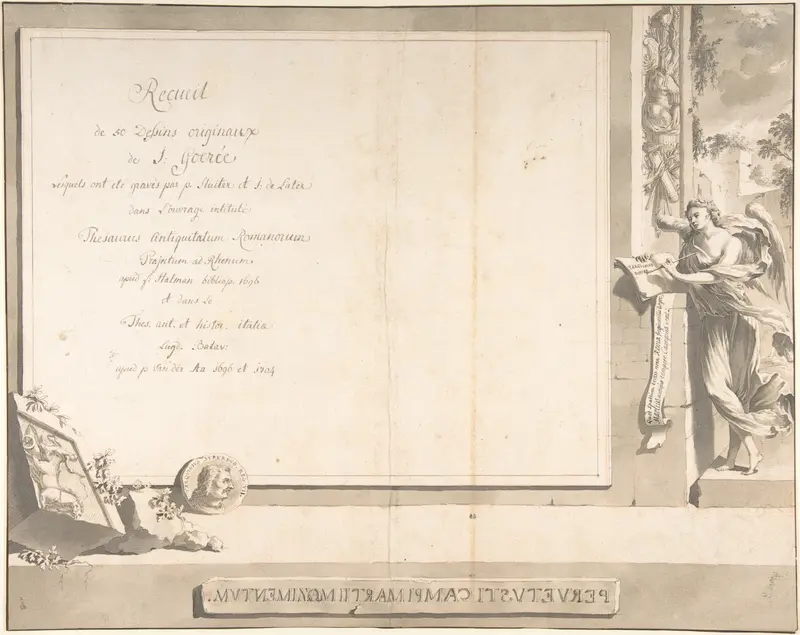 Recueil
de 50 Dessins originaux
de J. Goerée
Lesquels ont eté gravés par p. Sluiter et J. de Later
dans L'ouvrage intitulé
Thesaurus Antiquitatum Romanorum
Trajectum ad Rhenum
apud f. Halman bibliop. 1696
et dans le
Thes. ant. et histor. italiæ
Lugd. Batav.
apud p. Van der Aa 1696 et 1704
PERVETUSTI CAMPI MARTII MONIMENTUM.